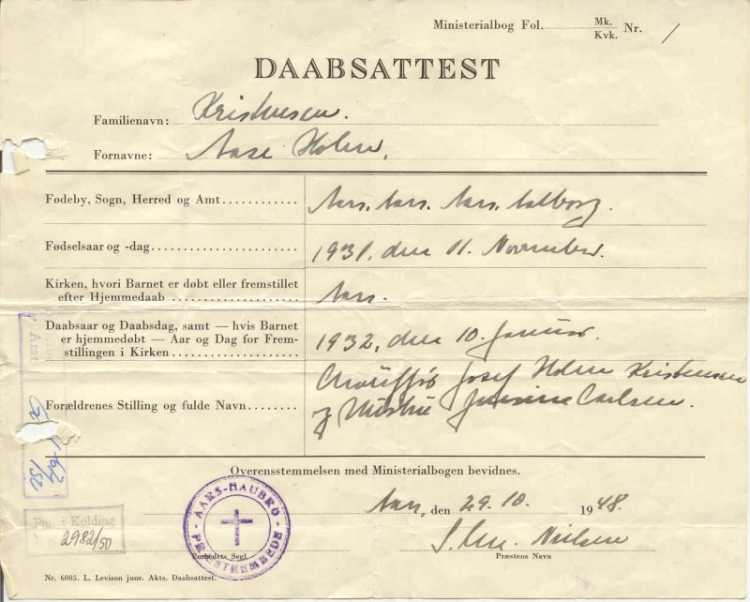 Ministerialbog Fol. Mk. Kvk. Nr. 1
DAABSATTEST
Familienavn: Kristensen.
Fornavne: Aase Holm.
Fødeby, Sogn, Herred og Amt Aars. Aars. Aars. Aalborg.
Fødselsaar og -dag 1931, den 11. November.
Kirken, hvori Barnet er døbt eller fremstillet
efter Hjemmedaab Aars.
Daabsaar og Daabsdag, samt — hvis Barnet
er hjemmedøbt — Aar og Dag for Frem-
stillingen i Kirken 1932, den 10. Januar.
Josef Holm Kristensen
Forældrenes Stilling og fulde Navn og Hustru Carlsen.
Overensstemmelsen med Ministerialbogen bevidnes.
Aars, den 29. 10. 1948.
Nielsen
Præstens Navn
AARS-HAUBRO
PRÆSTEEMBEDE
Embedets Segl
Kolding
2982/50
Nr. 6005. L. Levison junr. Akts. Daabsattest.